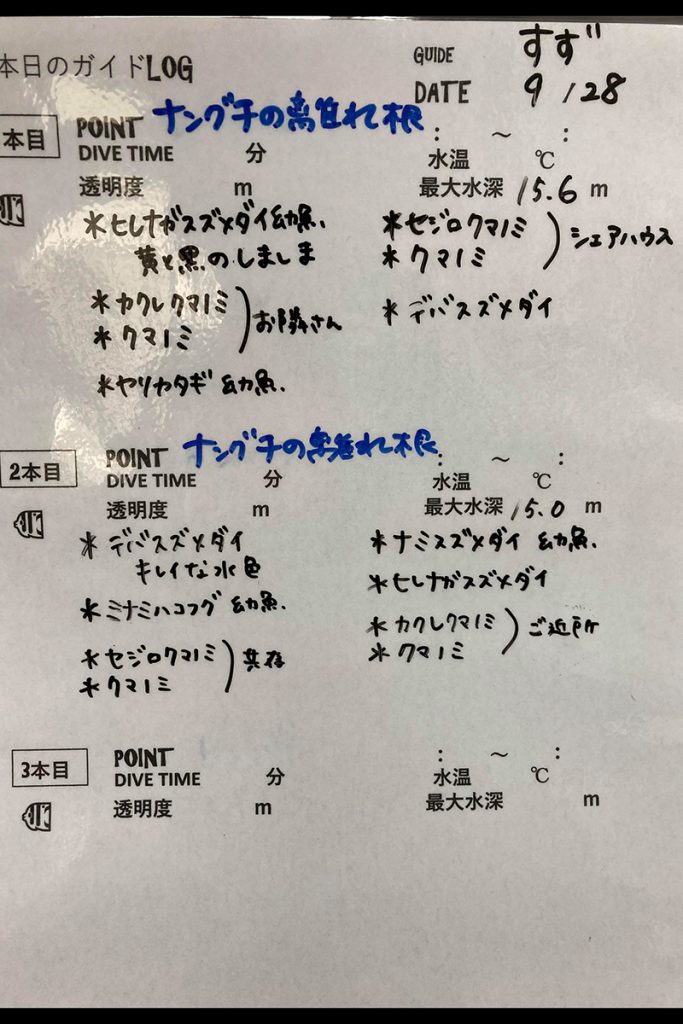 本日のガイドLOG
GUIDE すず
DATE 9/28
本目
POINT ナングチの離れ根
: ～ :
DIVE TIME 分
水温 ℃
透明度 m
最大水深 15.6 m
＊ヒレナガスズメダイ幼魚、
黄と黒のしましま
＊カクレクマノミ
＊クマノミ
お隣さん
＊ヤリカタギ 幼魚、
＊セジロクマノミ
＊クマノミ
シェアハウス
＊デバスズメダイ
2本目
POINT ナングチの離れ根
: ～ :
DIVE TIME 分
水温 ℃
透明度 m
最大水深 15.0 m
＊デバスズメダイ
キレイな水色
＊ミナミハコフグ 幼魚、
＊セジロクマノミ
＊クマノミ
共存
＊ナミスズメダイ 幼魚、
＊ヒレナガスズメダイ
＊カクレクマノミ
＊クマノミ
ご近所
3本目
POINT
: ～ :
DIVE TIME 分
水温 ℃
透明度 m
最大水深 m